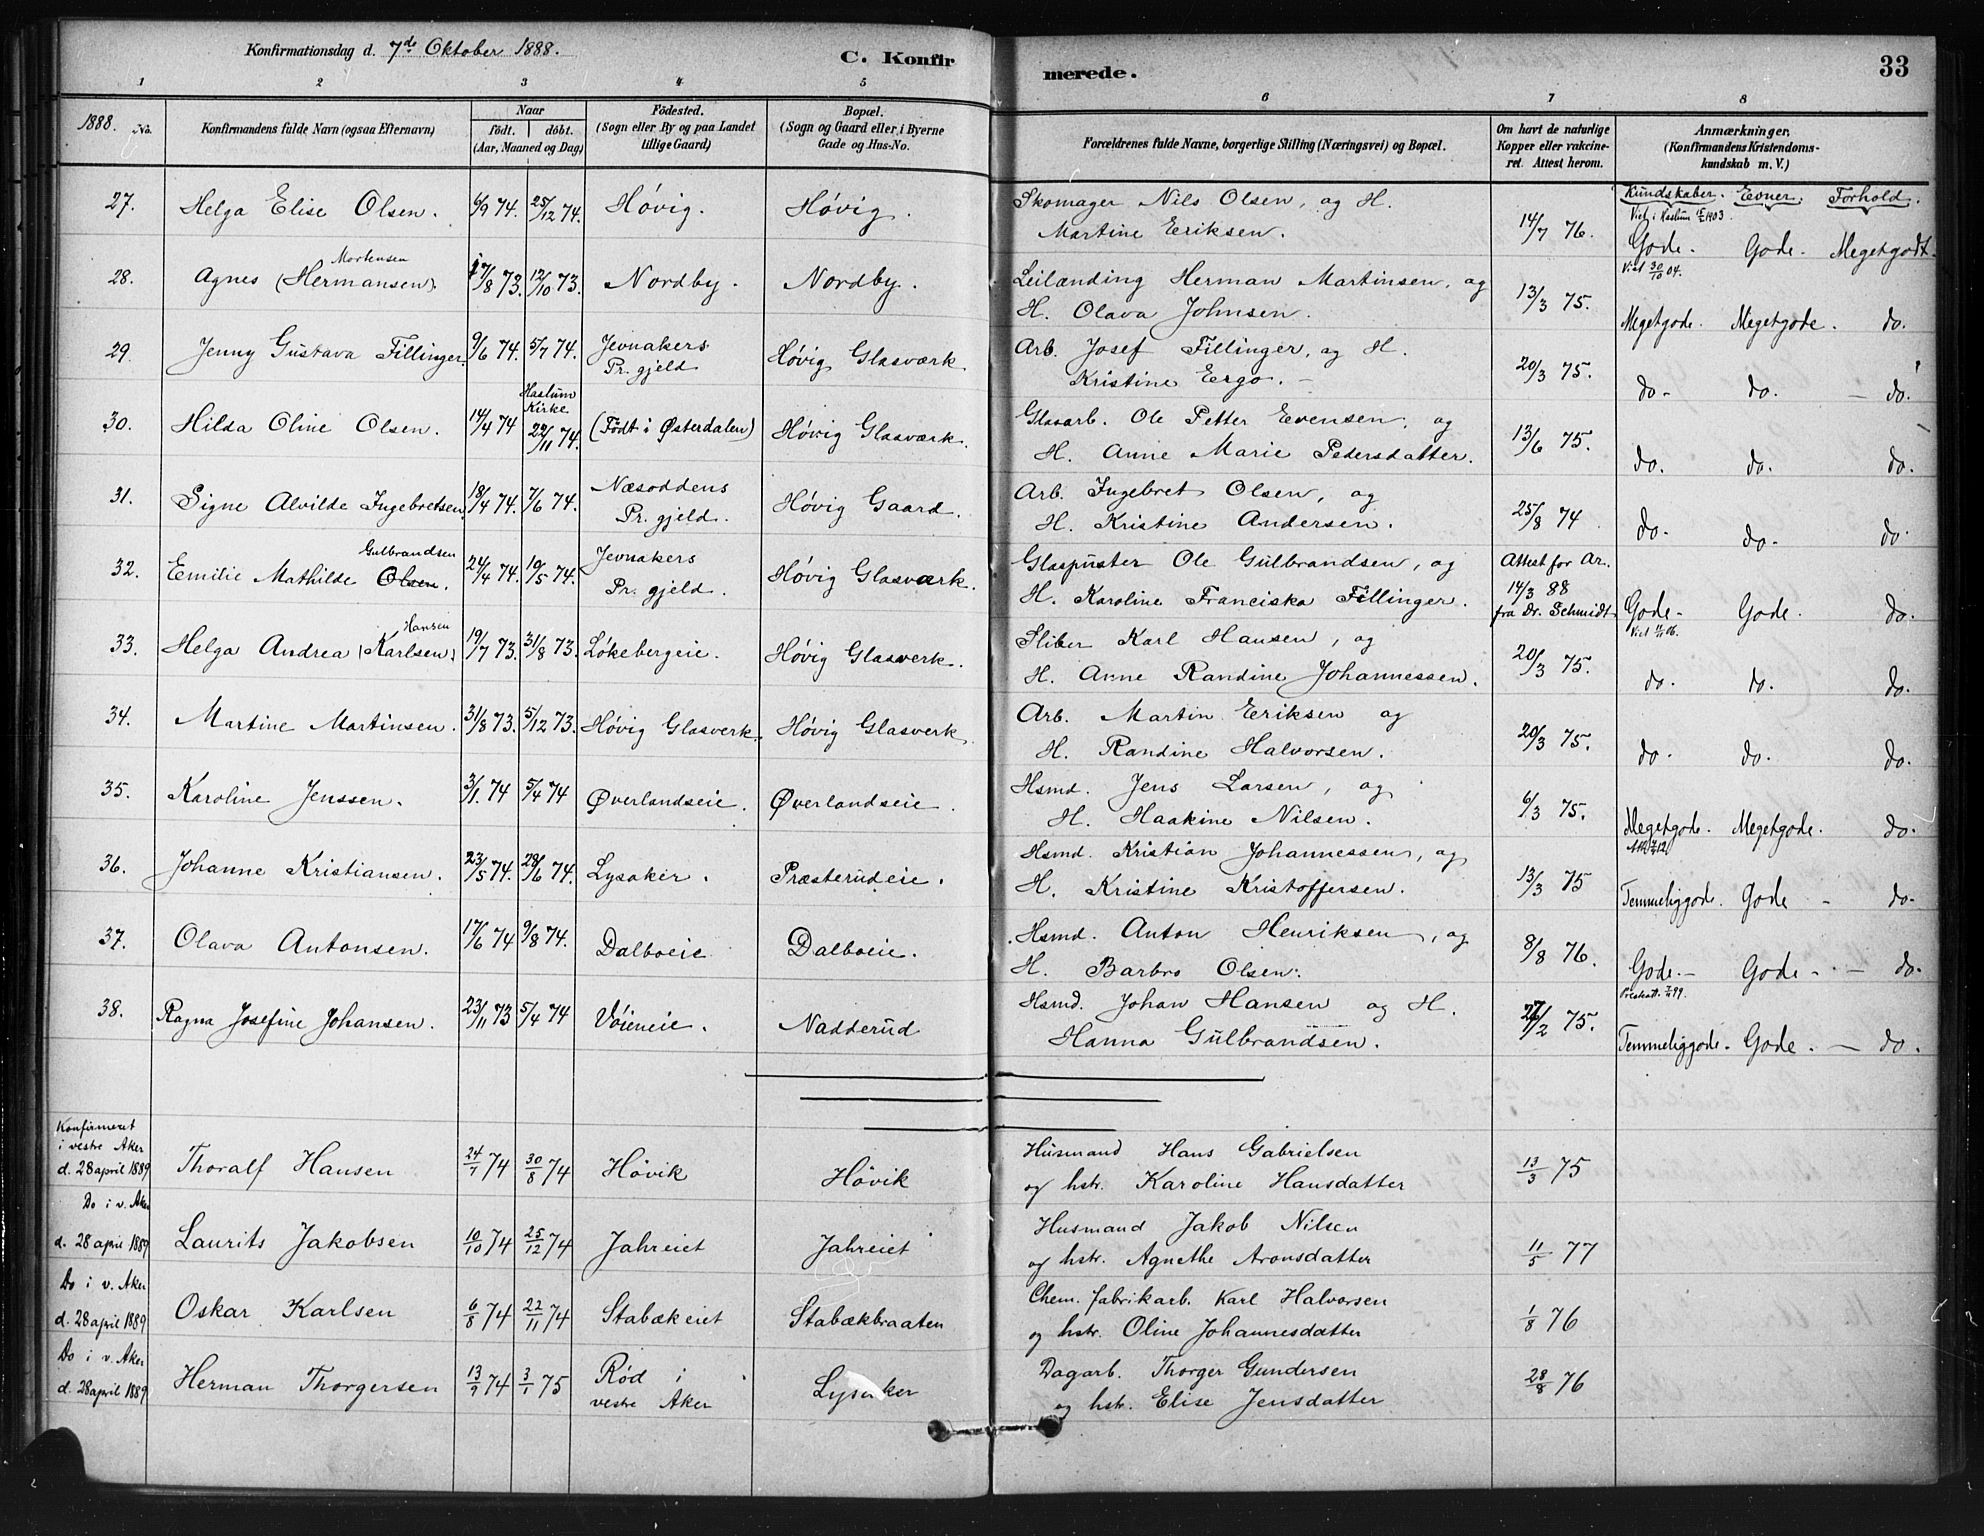 Konfirmationsdag d. 7de Oktober 1888.
C. Konfirmerede.
33
1 2 3 4 5 6 7 8
1888. No.
Konfirmandens fulde Navn (ogsaa Efternavn)
Naar
födt. döbt.
(Aar, Maaned og Dag)
Födested.
(Sogn eller By og paa Landet
tillige Gaard)
Bopæl.
(Sogn og Gaard eller, i Byerne
Gade og Hus-No.
Forældrenes fulde Navne, borgerlige Stilling (Næringsvei) og Bopæl.
Om havt de naturlige
Kopper eller vakcine-
ret. Attest herom.
Anmærkninger.
(Konfirmandens Kristendoms-
kundskab m. V.)
Kundskaber. Evner. Forhold.
27. Helga Elise Olsen. 6/9 74. 25/12 74. Høvig. Høvig. Skomager Nils Olsen, og H.
Martine Eriksen. 14/7 76. Gode. Gode. Megetgodt.
28. Agnes (Hermansen) Mortensen 17/8 73. 12/10 73. Nordby. Nordby. Leilænding Herman Martinsen, og
H. Olava Johnsen. 13/3 75. Viet 30/10 04. Megetgode. Megetgode. do.
29. Jenny Gustava Fillinger. 9/6 74. 5/7 74. Jevnakers
Pr. gjeld Høvig Glasværk. Arb. Josef Fillinger, og H.
Kristine Ergo. 20/3 75. do. do. do.
30. Hilda Oline Olsen. 14/4 74 Haslum
Kirke
22/11 74. (Født i Østerdalen) Høvig Glasværk. Glasarb. Ole Petter Evensen, og
H. Anne Marie Pedersdatter. 13/6 75. do. do. do.
31. Signe Alvilde Ingebretsen. 18/4 74. 7/6 74. Næsoddens
Pr. gjeld. Høvig Gaard. Arb. Ingebret Olsen, og
H. Kristine Andersen. 25/8 74. do. do. do.
32. Emilie Mathilde Olsen. Gulbrandsen 24/4 74. 10/5 74. Jevnakers
Pr. gjeld. Høvig Glasværk. Glaspuster Ole Gulbrandsen, og
H. Karoline Franciska Fillinger. Attest for Ar.
14/3 88
fra Dr. Schmidt. Gode. Gode. do.
33. Helga Andrea (Karlsen) Hansen 19/7 73. 31/8 73. Løkebergeie. Høvig Glasverk. Sliber Karl Hansen, og
H. Anne Randine Johannessen. 20/3 75. do. do. do.
34. Martine Martinsen. 31/8 73. 5/12 73. Høvig Glasverk. Høvig Glasverk. Arb. Martin Eriksen og
H. Randine Halvorsen. 20/3 75. do. do. do.
35. Karoline Jenssen. 3/1. 74 5/4 74 Øverlandseie. Øverlandseie. Hsmd. Jens Larsen, og
H. Haakine Nilsen. 6/3 75. Megetgode. Megetgode. do.
36. Johanne Kristiansen. 23/5 74. 28/6 74. Lysaker. Præsterudeie. Hsmd. Kristian Johannessen, og
H. Kristine Kristoffersen. 13/3 75 Temmeliggode. Gode - do.
37. Olava Antonsen. 17/6 74 9/8 74. Dalboeie Dalboeie. Hsmd. Anton Henriksen, og
H. Barbro Olsen. 8/8 76. Gode. Gode - do.
38. Ragna Josefine Johansen. 23/11 73 5/4 74 Vöieneie. Nadderud Hsmd. Johan Hansen og H.
Hanna Gulbrandsen. 75. Temmeliggode. Gode. - do.
Konfirmeret
i vestre Aker
d. 28 april 1889 Thoralf Hansen 24/7 74 30/8 74 Hövik Hövik Husmand Hans Gabrielsen
og hstr. Karoline Hansdatter 13/3 75
Do i v. Aker
d. 28 april 1889 Laurits Jakobsen 10/10 74 25/12 74 Jahreiet Jahreiet Husmand Jakob Nilsen
og hstr. Agnethe Aronsdatter 11/5 77
Do i v. Aker
d. 28 april 1889 Oskar Karlsen 6/8 74 22/11 74 Stabækeiet Stabækbraaten Chem. fabrikarb. Karl Halvorsen
og hstr. Oline Johannesdatter 1/8 76
Do i v. Aker
d. 28 april 1889 Herman Thorgersen 13/9 74 3/1 75 Rød i
vestre Aker Lysaker Dagarb. Thorger Gundersen
og hstr. Elise Jensdatter 28/8 76